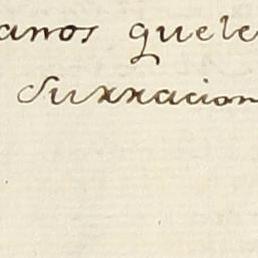 anos quele
Surracion